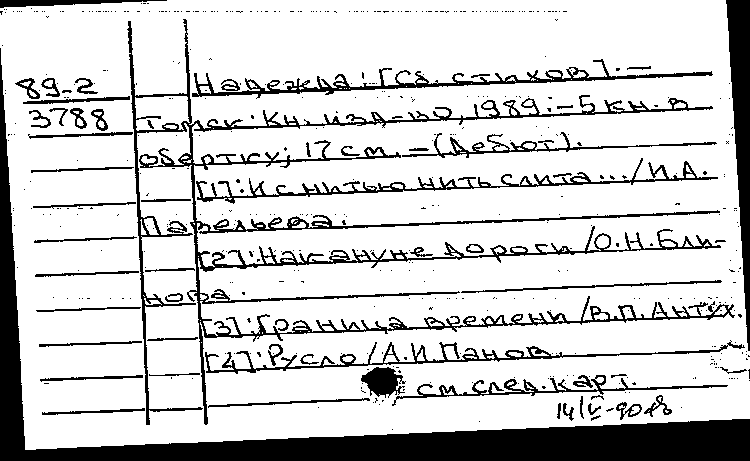 89-2 Надежда: [Сб. стихов]. —
3788 Томск: Кн. изд-во, 1989. — 5 кн. в
обертку; 17 см. — (Дебют).
[1]: И с нитью нить слита... / И.А.
Павельева.
[2]: Накануне дороги / О.Н. Бли-
нова.
[3]: Граница времени / В.П. Антух.
[4]: Русло / А.И. Панов.
см. след. карт.
14/V-90